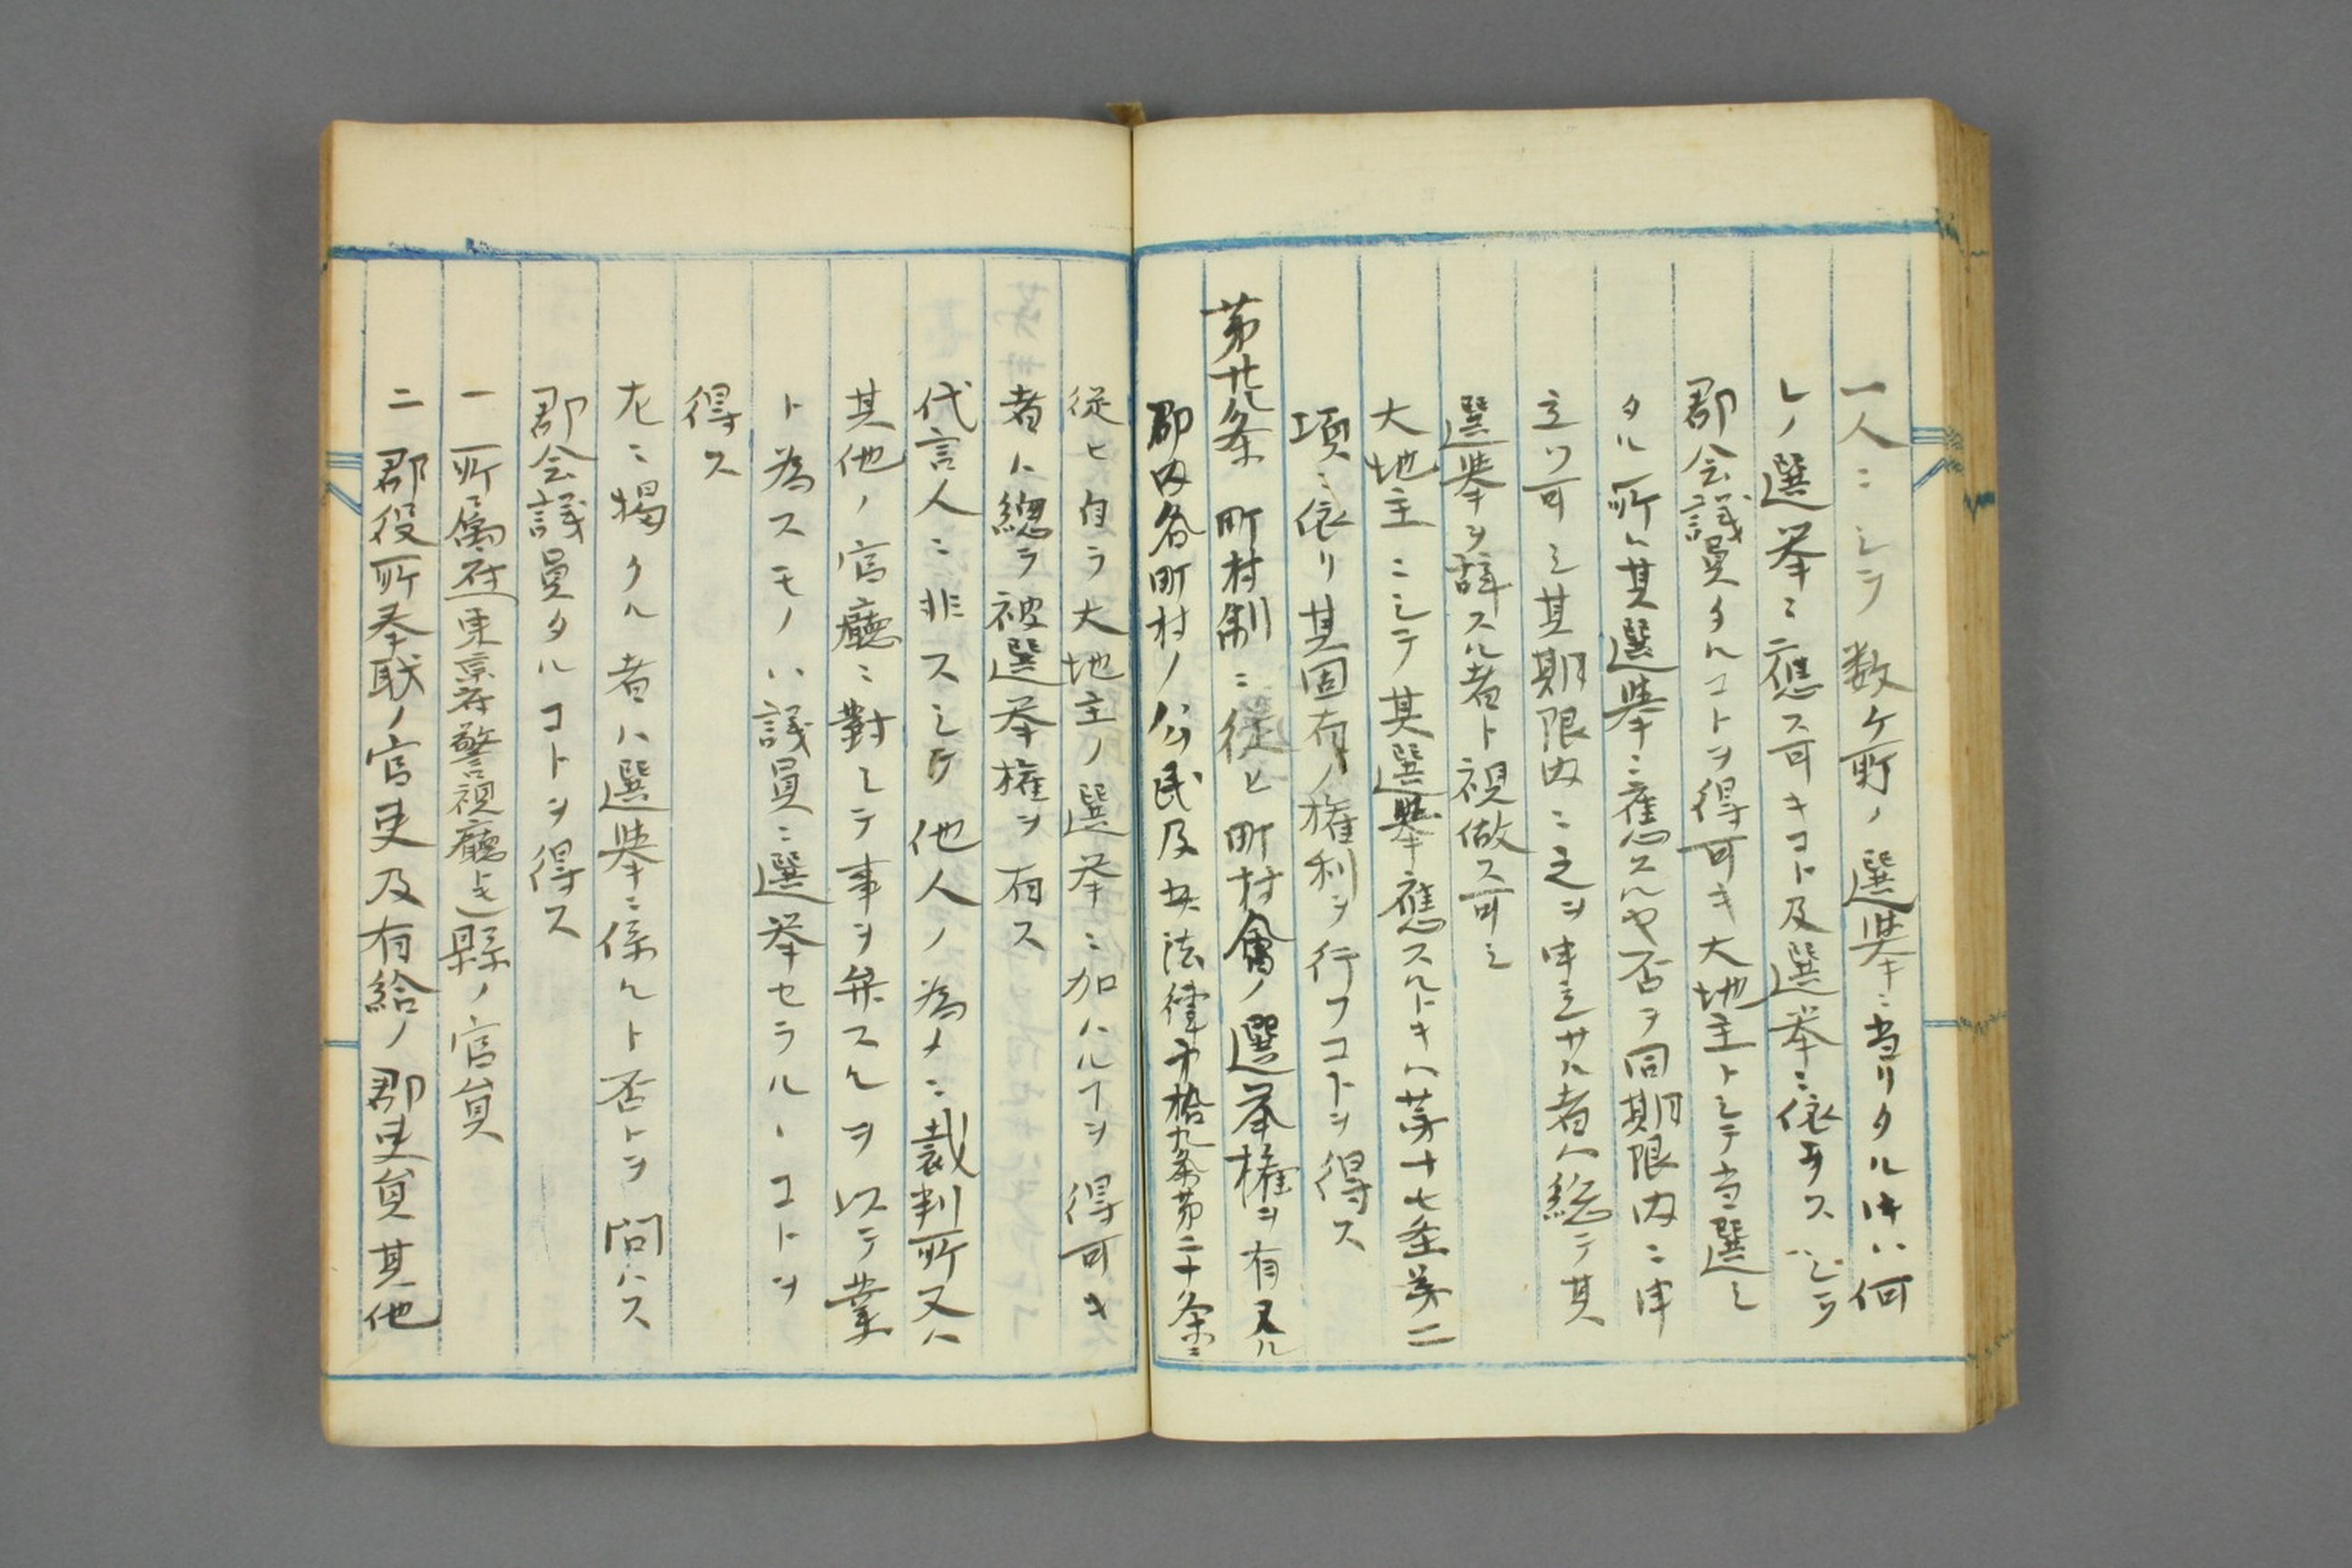 一人ニシテ数ケ所ノ選挙ニ当リタル時ハ何
レノ選挙ニ應ス可キコト及選挙ニ依ラスシテ
郡会議員タルコトヲ得可キ大地主トシテ当選シ
タル所ハ其選挙ニ應スルヤ否ヲ同期限内ニ申
立ツ可シ其期限内ニ之ヲ申立サル者ハ総テ其
選挙ヲ辞スル者ト視做ス可シ
大地主ニシテ其選挙應スルトキハ第十七条第二
項ニ依リ其固有ノ権利ヲ行フコトヲ得ス
第廿条 町村制ニ従ヒ町村會ノ選挙権ヲ有スル
郡内各町村ノ公民及其法律第拾九条第二十条ニ
従ヒ自ラ大地主ノ選挙ニ加ハルヿヲ得可キ
者ハ總テ被選挙権ヲ有ス
代言人ニ非スシテ他人ノ為メニ裁判所又ハ
其他ノ官廳ニ對シテ事ヲ弁スルヲ以テ業
ト為スモノハ議員ニ選挙セラルヽコトヲ
得ス
左ニ掲クル者ハ選挙ニ係ルト否トヲ問ハス
郡会議員タルコトヲ得ス
一 所属府東京府警視廳トモ縣ノ官員
二 郡役所奉職ノ官吏及有給ノ郡吏員其他